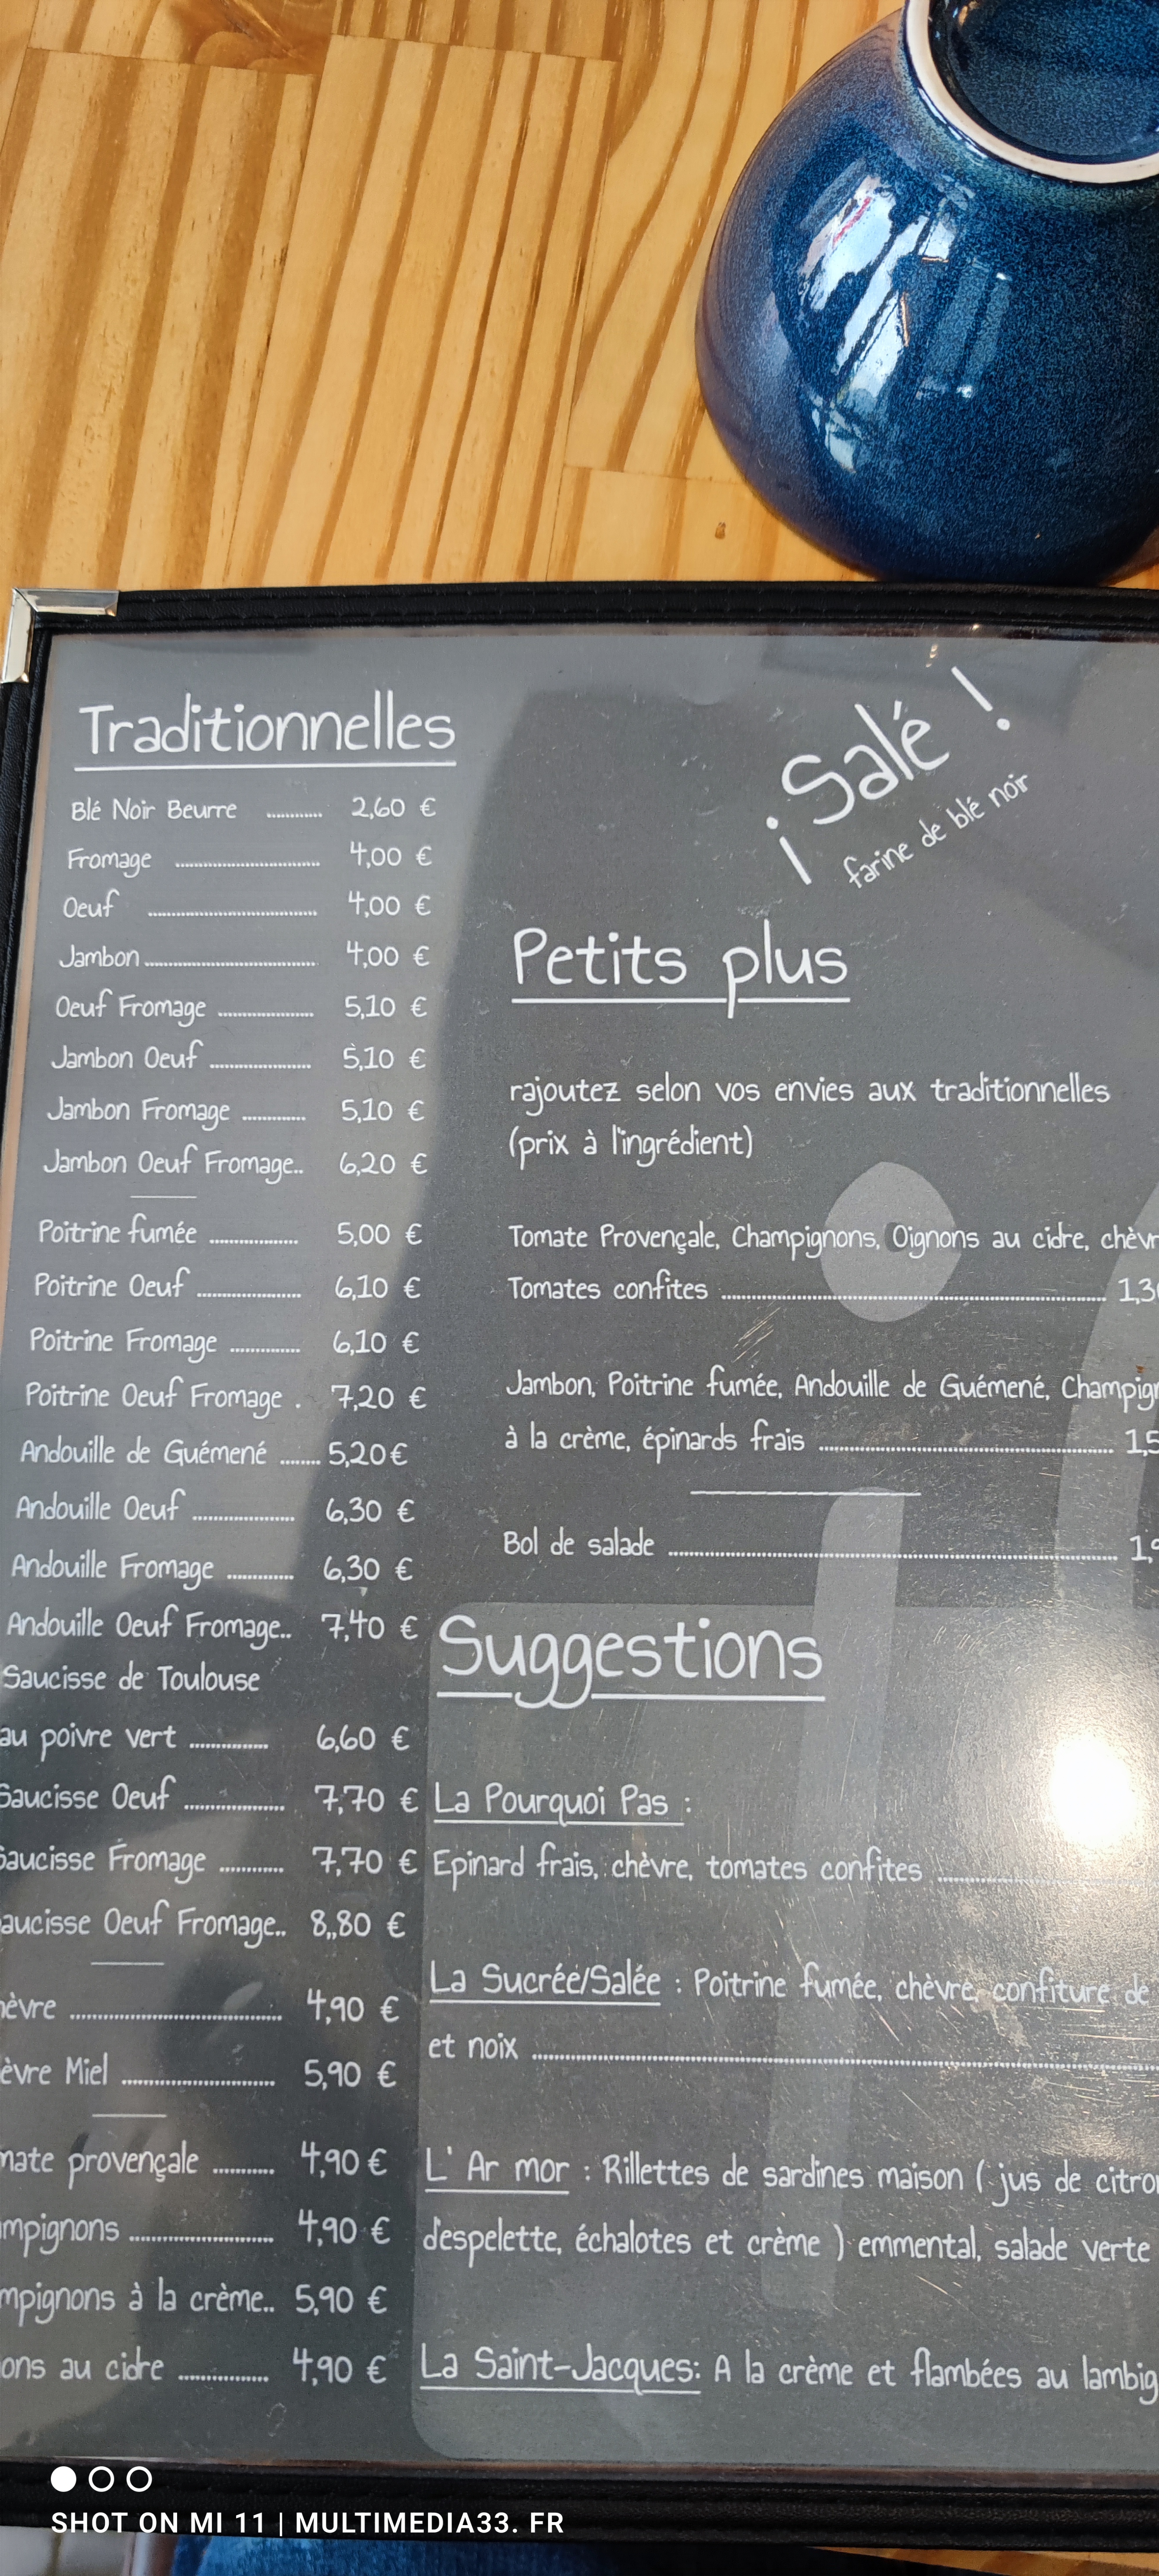 Traditionnelles
Blé Noir Beurre ............ 2,60 €
Fromage ............ 4,00 €
Oeuf ............ 4,00 €
Jambon ............ 4,00 €
Oeuf Fromage ............ 5,10 €
Jambon Oeuf ............ 5,10 €
Jambon Fromage ............ 5,10 €
Jambon Oeuf Fromage.. 6,20 €
Poitrine fumée ............ 5,00 €
Poitrine Oeuf ............ 6,10 €
Poitrine Fromage ............ 6,10 €
Poitrine Oeuf Fromage . 7,20 €
Andouille de Guémené ........ 5,20 €
Andouille Oeuf ............ 6,30 €
Andouille Fromage ............ 6,30 €
Andouille Oeuf Fromage.. 7,40 €
Saucisse de Toulouse
au poivre vert ............ 6,60 €
Saucisse Oeuf ............ 7,70 €
Saucisse Fromage ............ 7,70 €
aucisse Oeuf Fromage.. 8,,80 €
èvre ............ 4,90 €
èvre Miel ............ 5,90 €
mate provençale ............ 4,90 €
mpignons ............ 4,90 €
mpignons à la crème.. 5,90 €
ons au cidre ............ 4,90 €
¡ Salé !
farine de blé noir
Petits plus
rajoutez selon vos envies aux traditionnelles
(prix à l'ingrédient)
Tomate Provençale, Champignons, Oignons au cidre, chèvr
Tomates confites ............ 1,3
Jambon, Poitrine fumée, Andouille de Guémené, Champig
à la crème, épinards frais ............ 1,5
Bol de salade ............ 1,
Suggestions
La Pourquoi Pas :
Epinard frais, chèvre, tomates confites ............
La Sucrée/Salée : Poitrine fumée, chèvre, confiture de
et noix ............
L' Ar mor : Rillettes de sardines maison ( jus de citro
d'espelette, échalotes et crème ) emmental, salade verte
La Saint-Jacques: A la crème et flambées au lambig
SHOT ON MI 11 | MULTIMEDIA33. FR